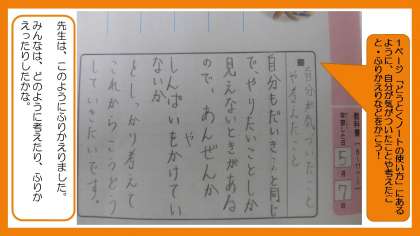 1ページ「どうとくノートの使い方」にある
ように、自分が気がついたことや考えたこ
と・ふりかえりなどをかこう！
教科書
学習した日
5月
7日
自分が気づいたこと
や考えたこと
自分もだいきさんと同じ
で、やりたいことしか
見えないときがある
ので、あんぜんか
や
しんぱいをかけてい
ないか
をしっかり考えて
これからこうどう
していきたいです。
先生は、このようにふりかえりました。
みんなは、どのように考えたり、ふりか
えったりしたかな。